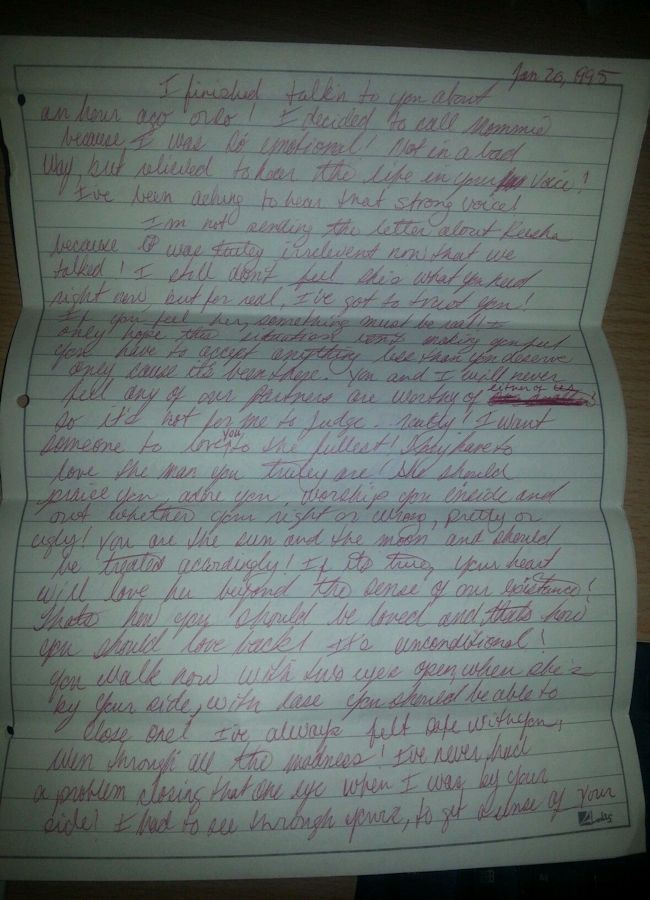 Jan 20, 1995
I finished talkin to you about
an hour ago or so! I decided to call Mommie
because I was so emotional! Not in a bad
way, but relieved to hear the life in your voice!
I've been aching to hear that strong voice!
I'm not sending the letter about Keisha
because it was truley irrelevent now that we
talked! I still don't feel she's what you need
right now but for real, I've got to trust you!
If you feel her, something must be real! I
only hope this situation isn't making you feel
you have to accept anything less than you deserve
only cause it's been there. You and I will never
feel any of our partners are worthy of either of us!
so it's not for me to judge. really! I want
someone to love you to the fullest! They have to
love the man you truley are! She should
praise you, adore you, worship you inside and
out whether your right or wrong, pretty or
ugly! You are the sun and the moon and should
be treated accordingly! If its true, your heart
will love her beyond the sense of our existance!
Thats how you should be loved and thats how
you should love back! It's unconditional!
You walk now with two eyes open, when she's
by your side, with ease you should be able to
close one! I've always felt safe with you,
even through all the madness! I've never had
a problem closing that one eye when I was by your
side! I had to see through yours, to get a sense of your